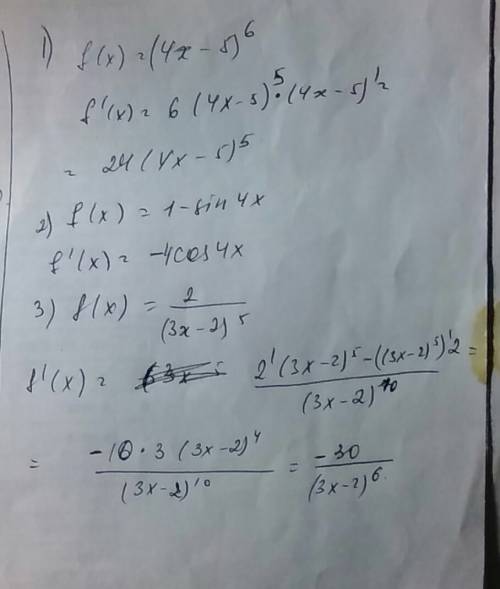 1) f(x) = (4x - 5)^6
f'(x) = 6 (4x - 5)^5 · (4x - 5)' =
= 24 (4x - 5)^5
2) f(x) = 1 - sin 4x
f'(x) = -4cos 4x
3) f(x) = 2 / (3x - 2)^5
f'(x) = (2'(3x - 2)^5 - ((3x - 2)^5)' 2) / (3x - 2)^10 =
= (-10 · 3 (3x - 2)^4) / (3x - 2)^10 = -30 / (3x - 2)^6